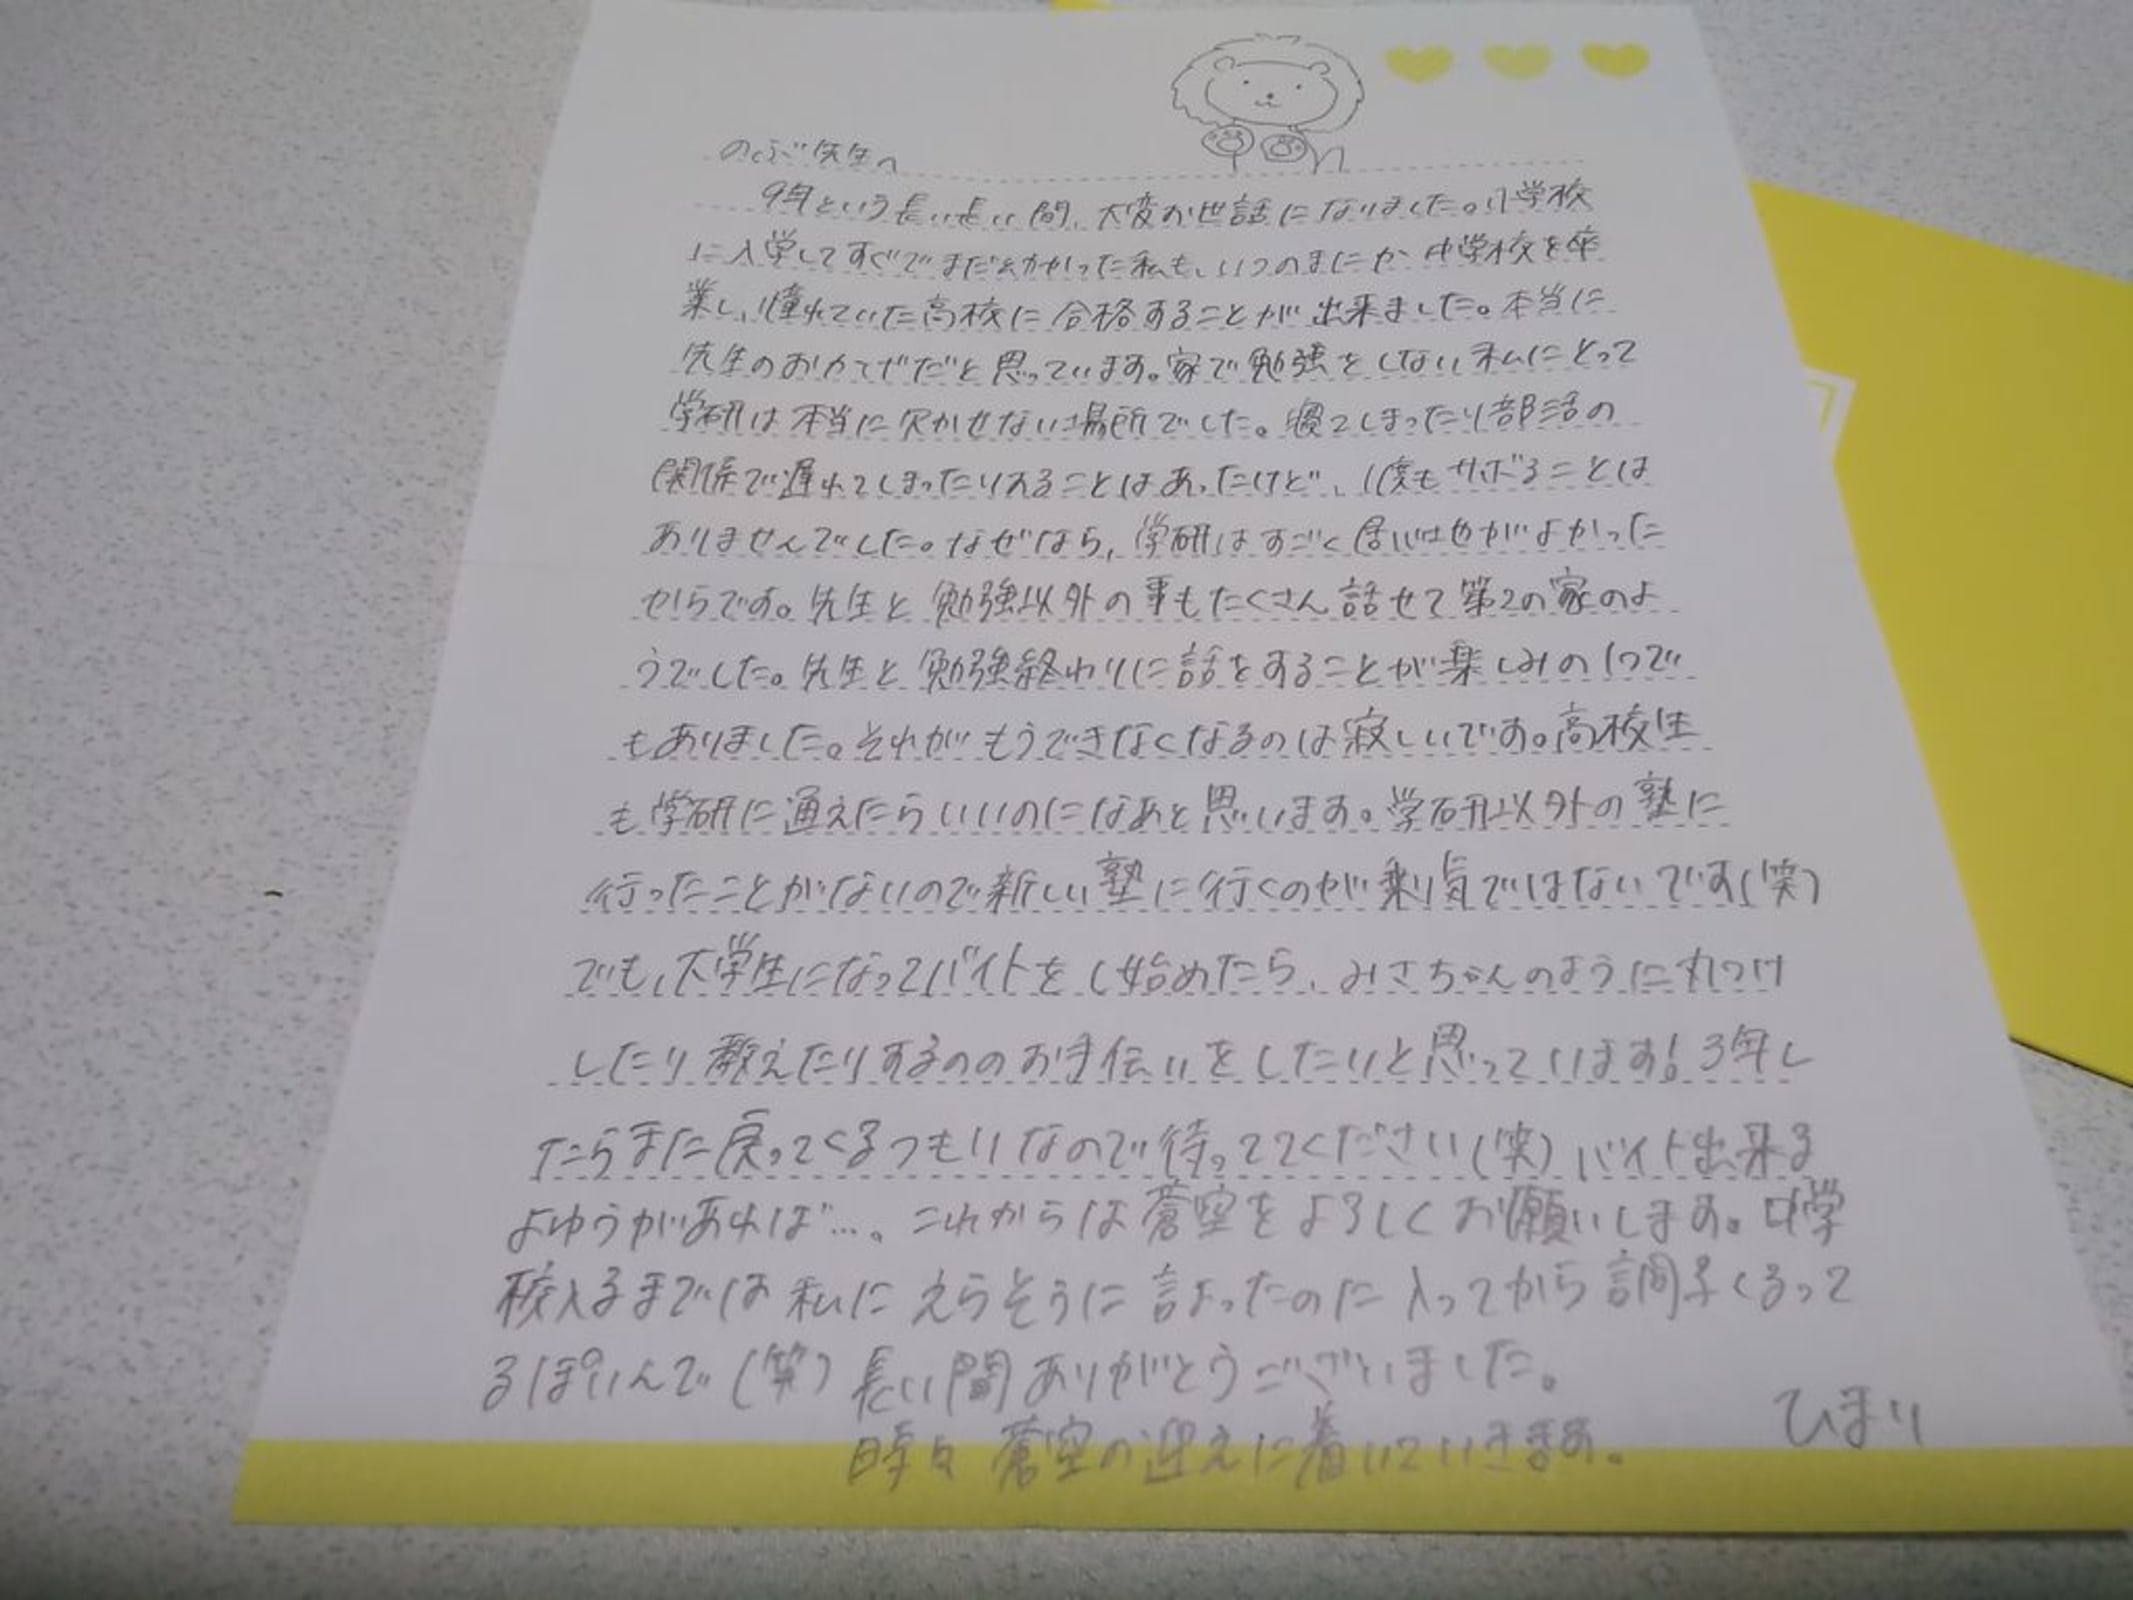 のぶ先生へ
9年という長い長い間、大変お世話になりました。小学校
に入学してすぐでまだ幼かった私も、いつのまにか中学校を卒
業し、憧れていた高校に合格することが出来ました。本当に
先生のおかげだと思っています。家で勉強をしない私にとって
学研は本当に欠かせない場所でした。寝てしまったり部活の
関係で遅れてしまったりすることはあったけど、1度もサボることは
ありませんでした。なぜなら、学研はすごく居心地がよかった
からです。先生と勉強以外の事もたくさん話せて第2の家のよ
うでした。先生と勉強終わりに話をすることが楽しみの1つで
もありました。それがもうできなくなるのは寂しいです。高校生
も学研に通えたらいいのになあと思います。学研以外の塾に
行ったことがないので新しい塾に行くのが乗り気ではないです(笑)
でも、大学生になってバイトをし始めたら、みさちゃんのように丸つけ
したり教えたりするののお手伝いをしたいと思っています!3年し
たらまた戻ってくるつもりなので待っててください(笑)バイト出来る
よゆうがあれば…。これからは蒼空をよろしくお願いします。中学
校入るまでは私にえらそうに言よったのに入ってから調子くるって
るぽいんで(笑)長い間ありがとうございました。
時々蒼空の迎えに着いていきます。
ひまり